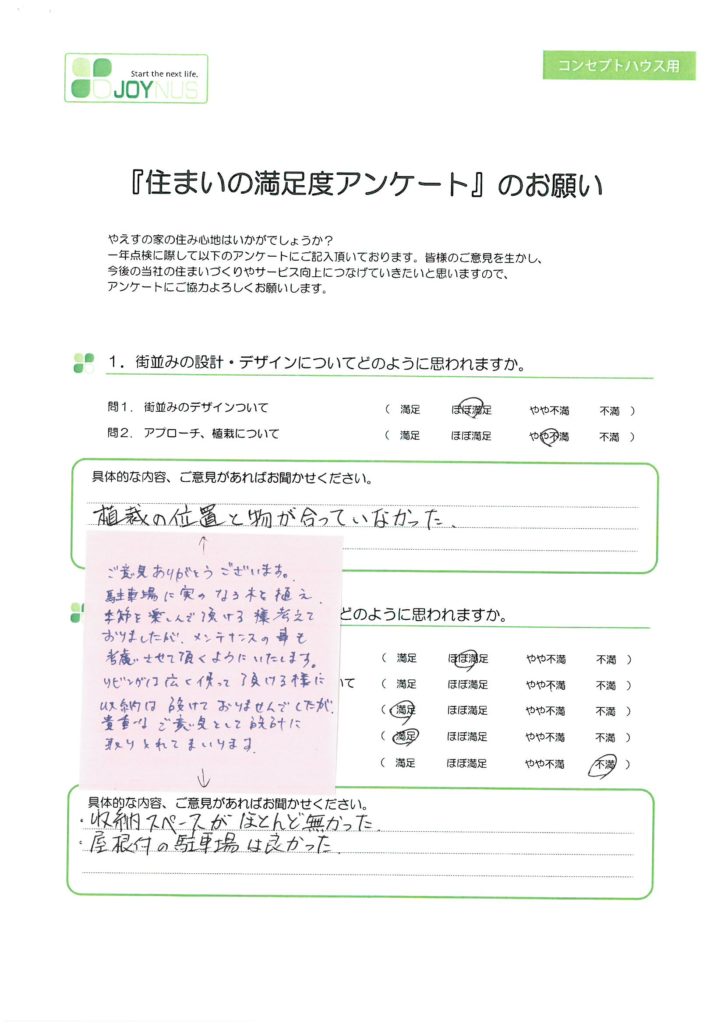 Start the next life.
JOYNUS
コンセプトハウス用
『住まいの満足度アンケート』のお願い
やえすの家の住み心地はいかがでしょうか？
一年点検に際して以下のアンケートにご記入頂いております。皆様のご意見を生かし、
今後の当社の住まいづくりやサービス向上につなげていきたいと思いますので、
アンケートにご協力よろしくお願いします。
1．街並みの設計・デザインについてどのように思われますか。
問1．街並みのデザインついて （ 満足 ほぼ満足 やや不満 不満 ）
問2．アプローチ、植栽について （ 満足 ほぼ満足 やや不満 不満 ）
具体的な内容、ご意見があればお聞かせください。
植裁の位置と物が合っていなかった.
↑
ご意見ありがとうございます。
駐車場に実のなる木を植え、
季節を楽しんで頂ける様考えて
おりましたが、メンテナンスの事も
考慮させて頂くようにいたします。
リビングは広く使って頂ける様に
収納は設けておりませんでしたが、
貴重なご意見として設計に
取り入れてまいります。
↓
どのように思われますか。
（ 満足 ほぼ満足 やや不満 不満 ）
いて （ 満足 ほぼ満足 やや不満 不満 ）
（ 満足 ほぼ満足 やや不満 不満 ）
（ 満足 ほぼ満足 やや不満 不満 ）
（ 満足 ほぼ満足 やや不満 不満 ）
具体的な内容、ご意見があればお聞かせください。
・収納スペースがほとんど無かった.
・屋根付の駐車場は良かった.